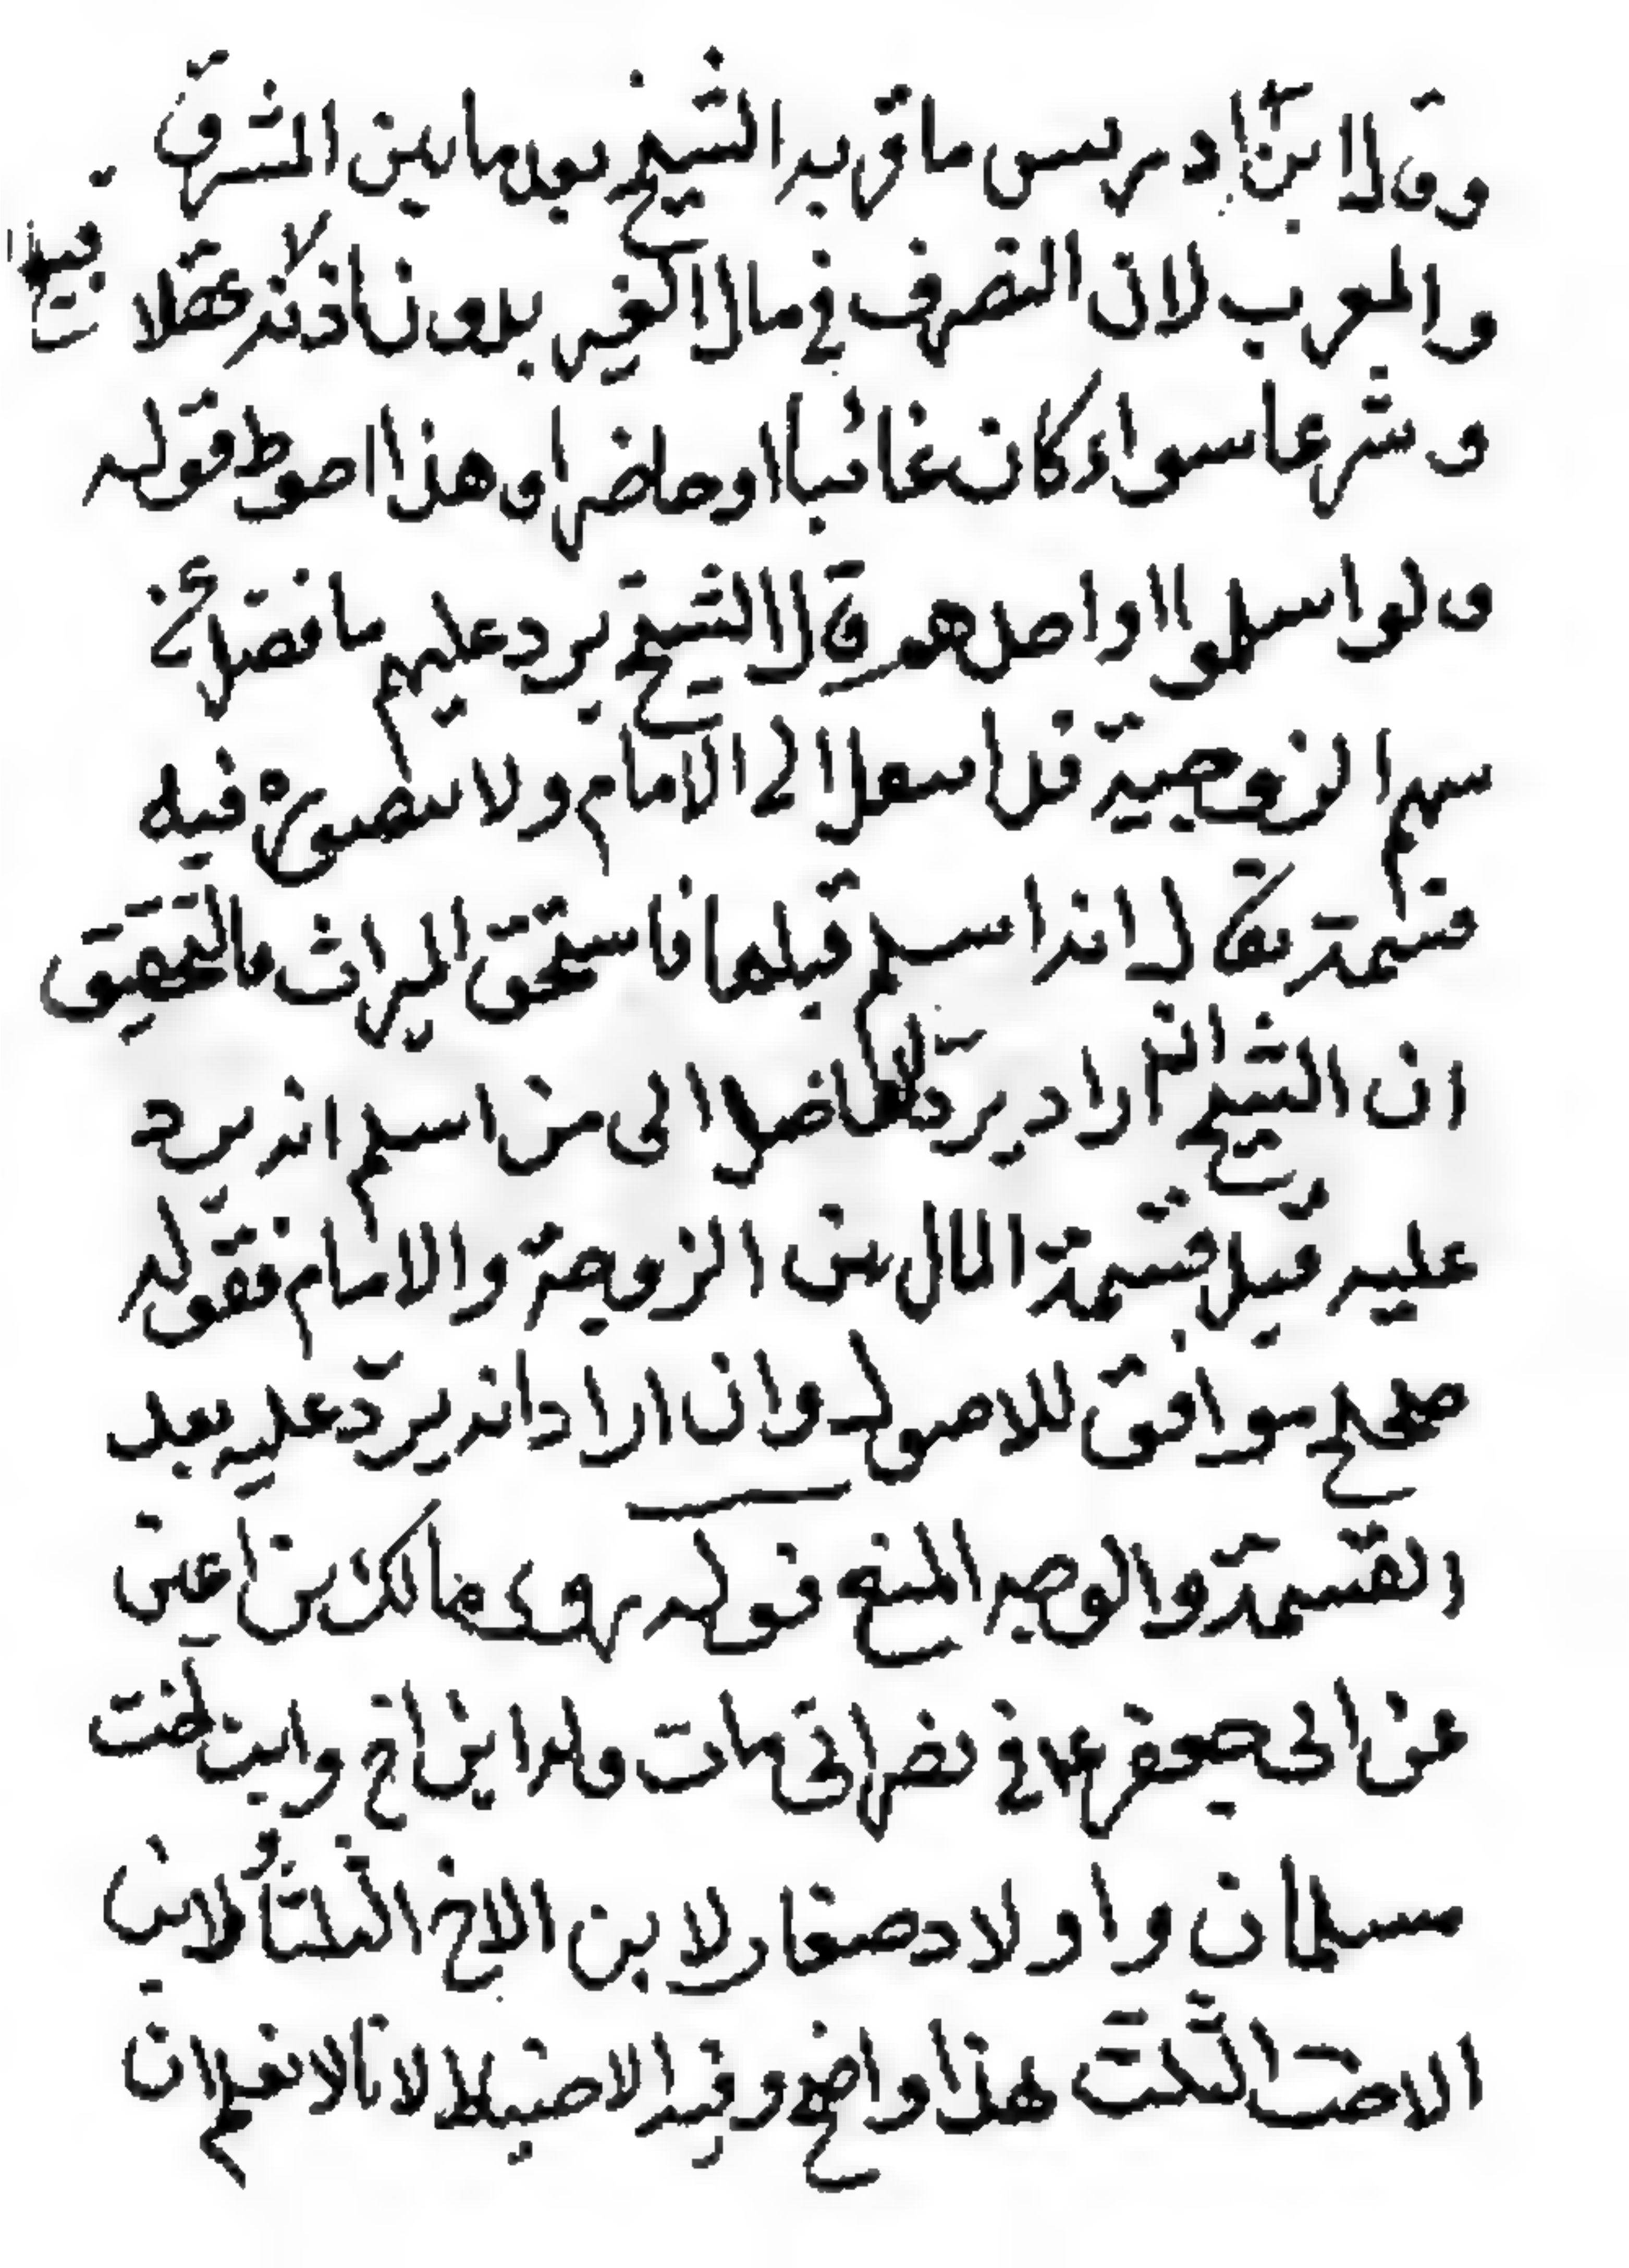 وقال ابن ادريس ما قربه الشيخ بعيد ما بين المشرق
والمغرب لان التصرف في مال الغير بدون اذنه عقلا قبيح
وشرعا سواء كان غائبا او حاضرا وهذا احوط قوله
ولو اسلموا او احدهم قال الشيخ يرد عليهم ما فضل عن
سهم الزوجية قلنا سهل الى الامام ولا يتصوره فيه
قسمة يقال انه اسلم قبلها فاستحق الميراث فالتحقيق
ان الشيخ ان اراد يرد الفاضل الى من اسلم انه يرد
عليه قبل قسمة المال بين الزوجة والامام فقوله
صحيح موافق للاصول وان اراد انه يرد عليه بعد
القسمة والوجه المنع قوله روى مالك بن اعين
عن ابي جعفر ع في نصراني مات وله ابن اخ وابن اخت
مسلمان واولاد صغار لابن الاخ الثلثان ولابن
الاخت الثلث هذا واضح وفيه الاحتياط لانا لا نعلم ان